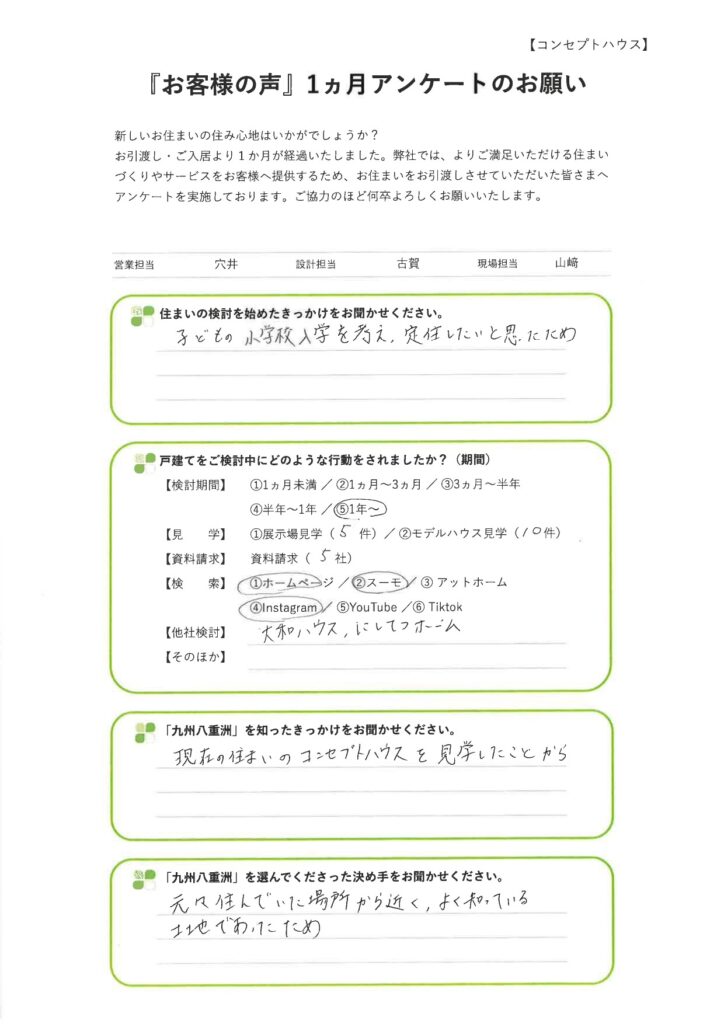 【コンセプトハウス】
『お客様の声』1ヵ月アンケートのお願い
新しいお住まいの住み心地はいかがでしょうか？
お引渡し・ご入居より１か月が経過いたしました。弊社では、よりご満足いただける住まい
づくりやサービスをお客様へ提供するため、お住まいをお引渡しさせていただいた皆さまへ
アンケートを実施しております。ご協力のほど何卒よろしくお願いいたします。
営業担当 穴井 設計担当 古賀 現場担当 山﨑
住まいの検討を始めたきっかけをお聞かせください。
子どもの小学校入学を考え、定住したいと思ったため
戸建てをご検討中にどのような行動をされましたか？（期間）
【検討期間】 ①1ヵ月未満 ／ ②1ヵ月～3ヵ月 ／ ③3ヵ月～半年
④半年～1年 ／ ⑤1年～
【見 学】 ①展示場見学（ 5 件）／ ②モデルハウス見学（10件）
【資料請求】 資料請求（ 5 社）
【検 索】 ①ホームページ ／ ②スーモ ／ ③ アットホーム
④Instagram ／ ⑤YouTube ／⑥ Tiktok
【他社検討】 大和ハウス、にしてつホーム
【そのほか】
「九州八重洲」を知ったきっかけをお聞かせください。
現在の住まいのコンセプトハウスを見学したことから
「九州八重洲」を選んでくださった決め手をお聞かせください。
元々住んでいた場所から近く、よく知っている
土地であったため